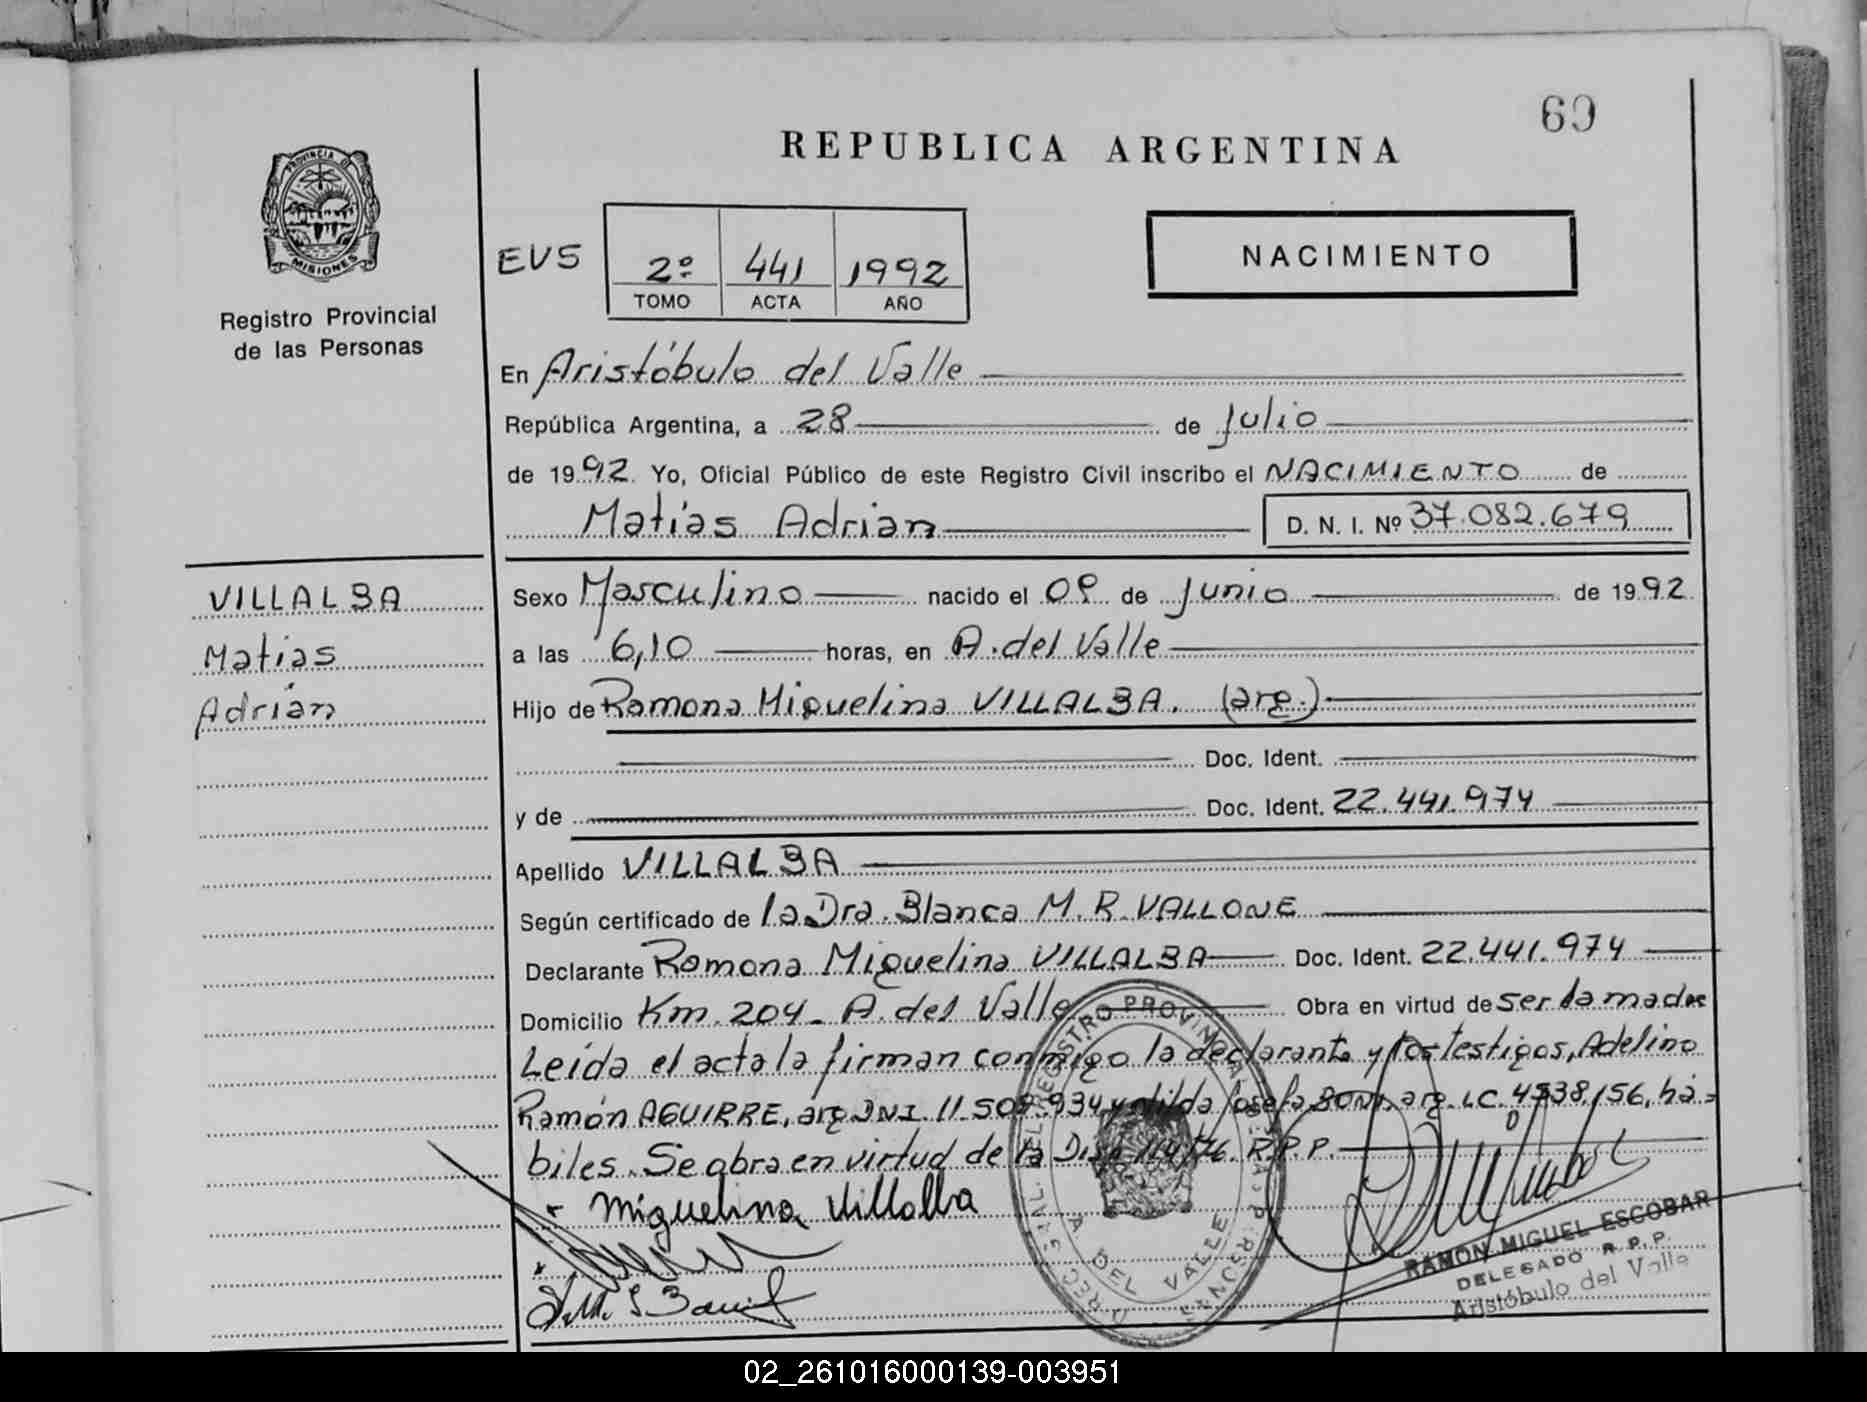 69
REPUBLICA ARGENTINA
PROVINCIA DE
MISIONES
Registro Provincial
de las Personas
EVS
2º 441 1992
TOMO ACTA AÑO
NACIMIENTO
En Aristóbulo del Valle
República Argentina, a 28 de Julio
de 1992. Yo, Oficial Público de este Registro Civil inscribo el NACIMIENTO de
Matías Adrian D. N. I. Nº 37.082.679
VILLALBA
Matías
Adrián
Sexo Masculino nacido el 09 de Junio de 1992
a las 6,10 horas, en A. del Valle
Hijo de Ramona Miquelina VILLALBA. (arg.)
Doc. Ident.
y de Doc. Ident. 22.441.974
Apellido VILLALBA
Según certificado de la Dra. Blanca M. R. VALLONE
Declarante Ramona Miquelina VILLALBA Doc. Ident. 22.441.974
Domicilio Km. 204 - A. del Valle Obra en virtud de ser la madre
Leída el acta la firman conmigo la declarante y los testigos, Adelino
Ramón AGUIRRE, arg. DNI. 11.508.934 y Josefa arg. LC. 4538.156, há-
biles. Se obra en virtud de la R.P.P.
Miguelina Villalba
REGISTRO PROVINCIAL
A DEL VALLE
RAMON MIGUEL ESCOBAR
DELEGADO R. P. P.
Aristóbulo del Valle
02_261016000139-003951